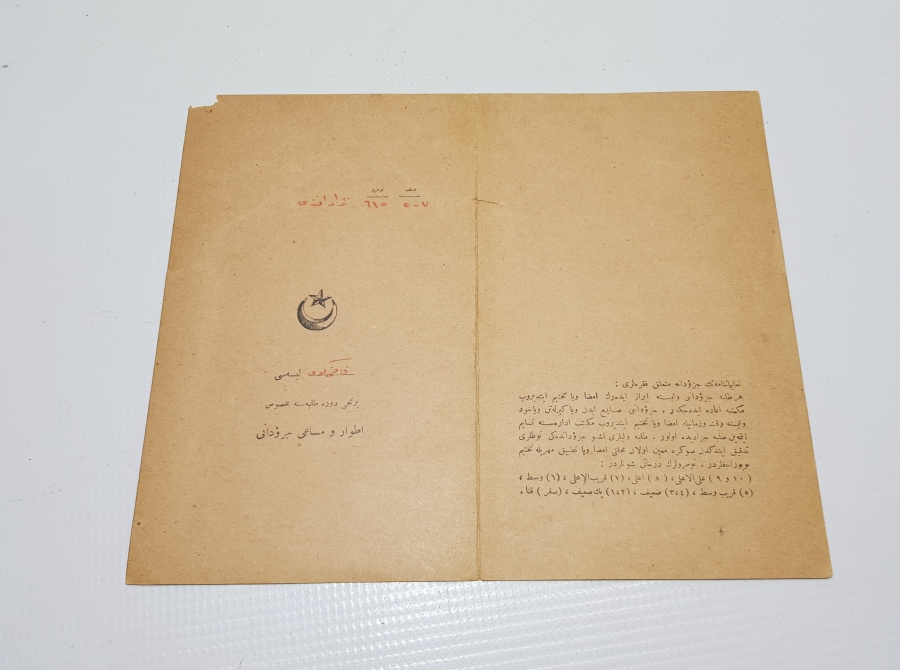 صنف نومرو
٧-٢ ٦١٥ نژاد افندی
قاضیكوی ليسه‌سی
برنجی دوره طلبه‌سنه مخصوص
اطوار و مساعی جزؤدانی
تعلیماتنامه‌نك جزؤدانه متعلق فقره‌لری :
هر طلبه جزؤدانی ولیسنه ابراز ایده‌رك امضا ویا تختیم ایتدیروب
مكتبه اعاده ایده‌جكدر . جزؤدانی ضایع ایدن ویا كیرله‌تن ویاخود
ولیسنه وقت و زمانیله امضا ویا تختیم ایتدیروب مكتب اداره‌سنه تسلیم
ایتمه‌ین طلبه جزادیده اولور . طلبه ولیلری اشو جزؤدانده‌كی نوطلری
تدقیق ایتدكدن سوكره معین اولان محلنی امضا ویا تطبیق مهریله تختیم
بویوراجقلردر . نومرولرك درجاتی شونلردر :
( ١٠ و ٩ ) علی الاعلی ، ( ٨ ) اعلی ، (٧) قریب الاعلی ، (٦) وسط ،
(٥) قریب وسط ، (٣،٤) ضعیف ، (١،٢) پك ضعیف ، (صفر) فنا .